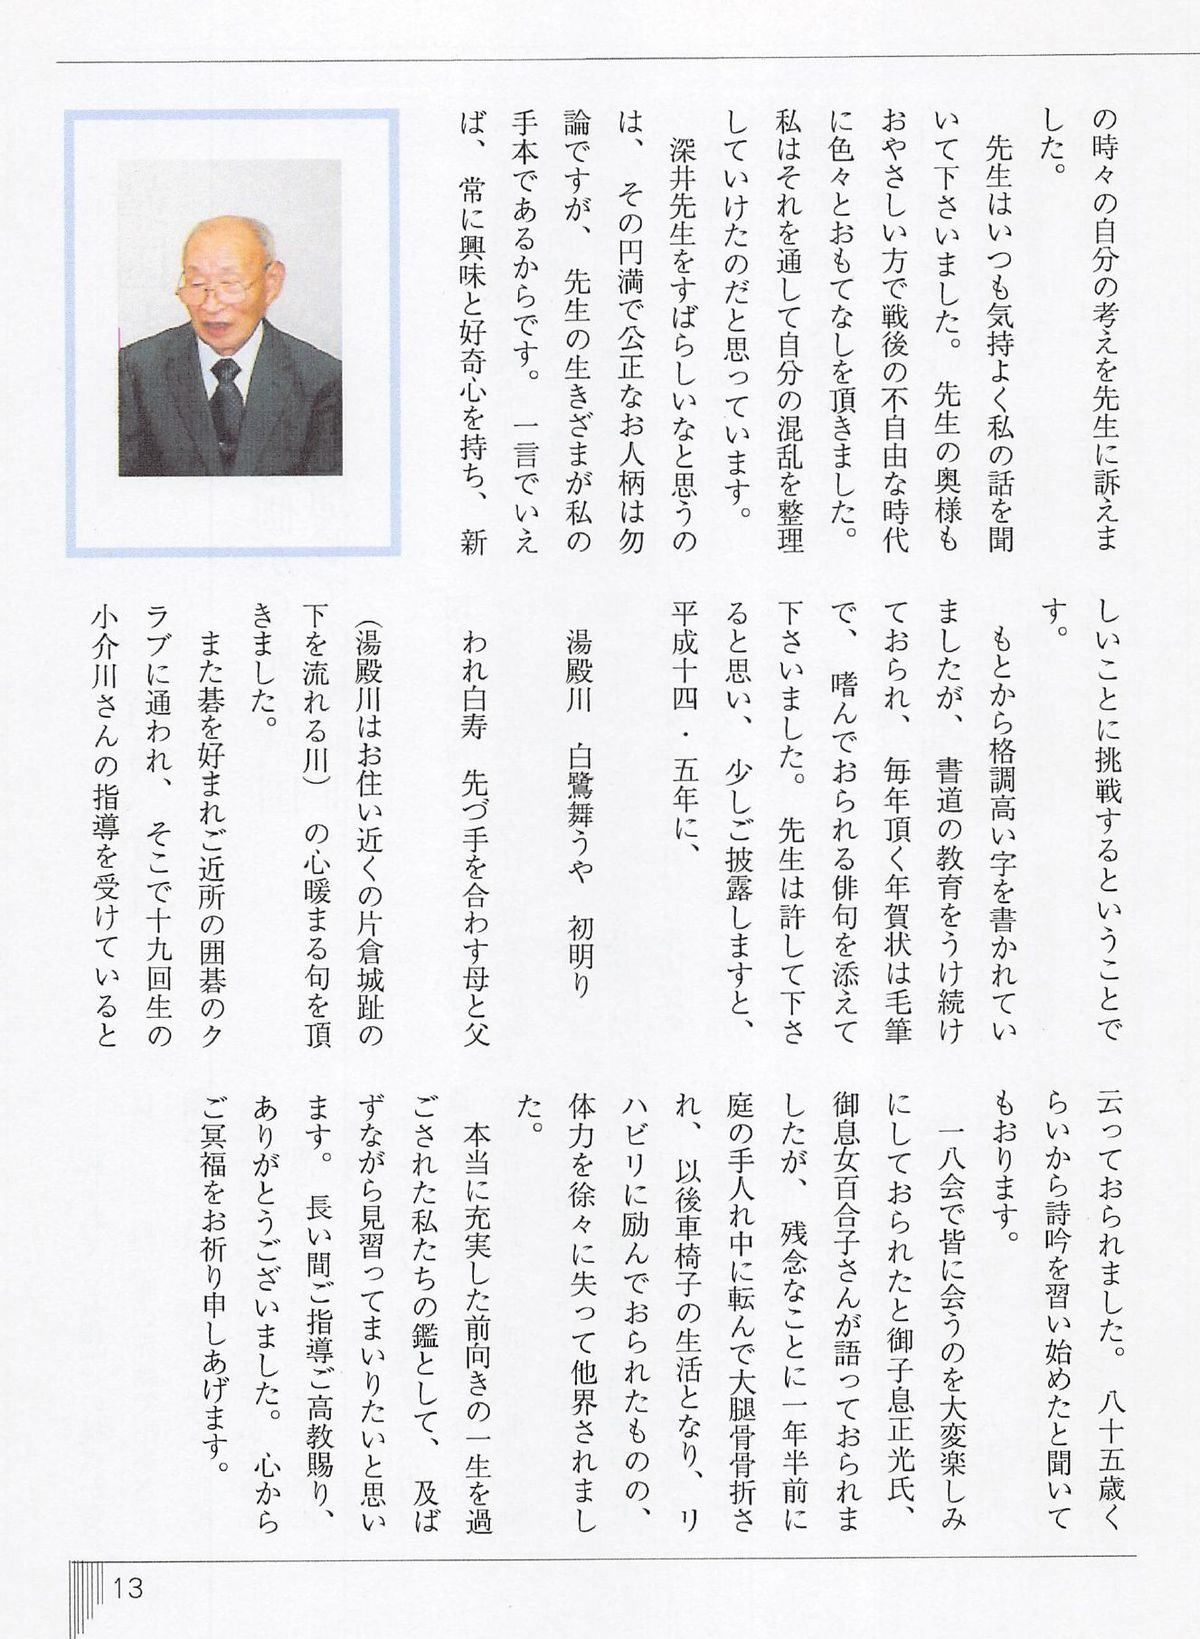 の時々の自分の考えを先生に訴えま
した。
先生はいつも気持よく私の話を聞
いて下さいました。先生の奥様も
おやさしい方で戦後の不自由な時代
に色々とおもてなしを頂きました。
私はそれを通して自分の混乱を整理
していけたのだと思っています。
深井先生をすばらしいなと思うの
は、その円満で公正なお人柄は勿
論ですが、先生の生きざまが私の
手本であるからです。一言でいえ
ば、常に興味と好奇心を持ち、新
しいことに挑戦するということで
す。
もとから格調高い字を書かれてい
ましたが、書道の教育をうけ続け
ておられ、毎年頂く年賀状は毛筆
で、嗜んでおられる俳句を添えて
下さいました。先生は許して下さ
ると思い、少しご披露しますと、
平成十四・五年に、
湯殿川 白鷺舞うや 初明り
われ白寿 先づ手を合わす母と父
(湯殿川はお住い近くの片倉城趾の
下を流れる川) の心暖まる句を頂
きました。
また碁を好まれご近所の囲碁のク
ラブに通われ、そこで十九回生の
小介川さんの指導を受けていると
云っておられました。八十五歳く
らいから詩吟を習い始めたと聞いて
もおります。
一八会で皆に会うのを大変楽しみ
にしておられたと御子息正光氏、
御息女百合子さんが語っておられま
したが、残念なことに一年半前に
庭の手入れ中に転んで大腿骨骨折さ
れ、以後車椅子の生活となり、リ
ハビリに励んでおられたものの、
体力を徐々に失って他界されまし
た。
本当に充実した前向きの一生を過
ごされた私たちの鑑として、及ば
ずながら見習ってまいりたいと思い
ます。長い間ご指導ご高教賜り、
ありがとうございました。心から
ご冥福をお祈り申しあげます。
13